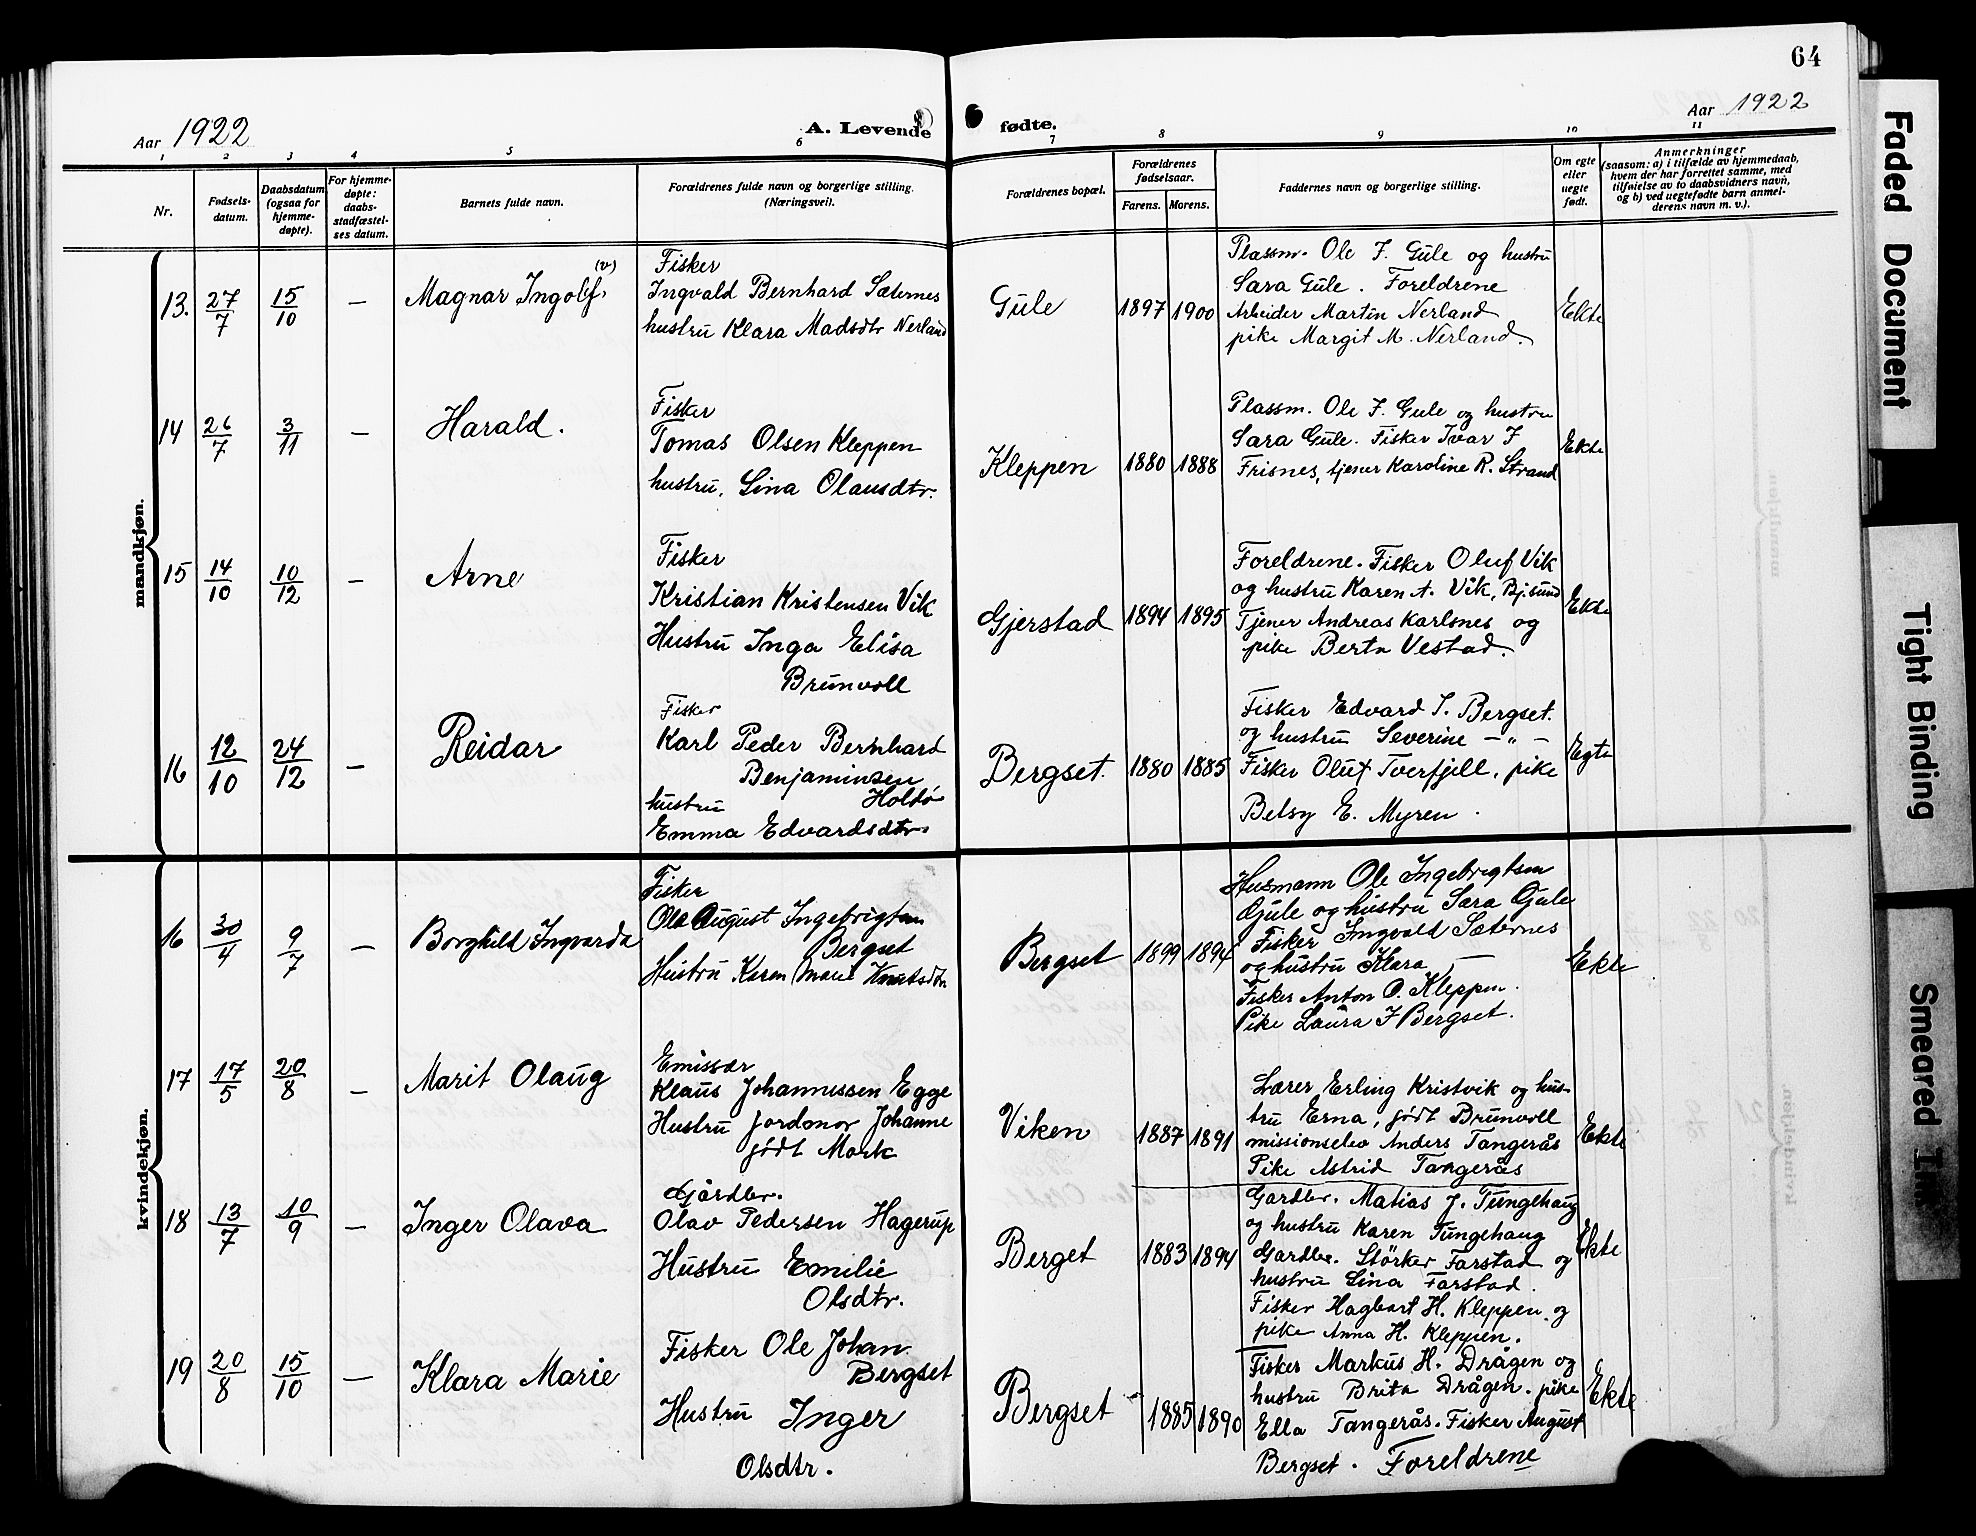 64
Aar 1922
A. Levende fødte.
Aar 1922
1 2 3 4 5 6 7 8 9 10 11
Nr.
Fødsels-
datum.
Daabsdatum
(ogsaa for
hjemme-
døpte).
For hjemme-
døpte:
daabs-
stadfæstel-
ses datum.
Barnets fulde navn.
Forældrenes fulde navn og borgerlige stilling.
(Næringsvei).
Forældrenes bopæl.
Forældrenes
fødselsaar.
Farens. Morens.
Faddernes navn og borgerlige stilling.
Om egte
eller
uegte
født.
Anmerkninger
(saasom: a) i tilfælde av hjemmedaab,
hvem der har forrettet samme, med
tilføielse av to daabsvidners navn,
og b) ved uegtefødte barn anmel-
derens navn m. v.).
mandkjøn.
13. 27/7 15/10 — Magnar Ingolf (v)
Fisker
Ingvald Bernhard Sæternes
hustru Klara Madsdtr Nerland
Gule 1897 1900
Plassm. Ole J. Gule og hustru
Sara Gule. Foreldrene
Arbeider Martin Nerland
pike Margit M. Nerland.
Ekte
14 26/7 3/11 — Harald.
Fisker
Tomas Olsen Kleppen
hustru, Lina Olausdtr.
Kleppen 1880 1888
Plassm. Ole J. Gule og hustru
Sara Gule. Fisker Ivar J
Frisnes, tjener Karoline R. Strand
Ekte
15 14/10 10/12 — Arne
Fisker
Kristian Kristensen Vik
Hustru Inga Elisa
Brunvoll
Gjerstad 1894 1895
Foreldrene. Fisker Oluf Vik
og hustru Karen A. Vik, Bj.sund
Tjener Andreas Karlsnes og
pike Berta Vestad.
Ekte
16 12/10 24/12 — Reidar
Fisker
Karl Peder Bernhard
Benjaminsen
hustru Holdø
Emma Edvardsdtr.
Bergset. 1880 1885
Fisker Edvard I. Bergset.
og hustru Severine — „ —
Fisker Oluf Tverfjell, pike
Betsy E. Myren.
Egte
kvindekjøn.
16 30/4 9/7 — Borghild Ingvarda
Fisker
Ole August Ingebrigtsen
Bergset
Hustru Karen Marie Knutsdtr
Bergset 1899 1894
Husmann Ole Ingebrigtsen
Gjule og hustru Sara Gjule
Fisker Ingvald Sæternes
og hustru Klara —
Fisker Anton O. Kleppen.
Pike Laura J Bergset.
Ekte
17 17/5 20/8 — Marit Olaug
Emissær
Klaus Johannessen Egge
Hustru Jordmor Johanne
født Mork
Viken 1887 1891
Lærer Erling Kristvik og hus-
tru Erna, født Brunvoll
missionselev Anders Tangerås
Pike Astrid Tangerås
Ekte
18 13/7 10/9 — Inger Olava
Gårdbr.
Olav Pedersen Hagerup
Hustru Emilie
Olsdtr.
Berget 1883 1894
Gardbr. Matias J. Tungehaug
og hustru Karen Tungehaug
Gardbr. Størker Farstad og
hustru Lina Farstad.
Fisker Hagbart H. Kleppen og
pike Anna H. Kleppen.
Ekte
19 20/8 15/10 — Klara Marie
Fisker Ole Johan
Bergset
Hustru Inger
Olsdtr.
Bergset 1885 1890
Fisker Markus H. Drågen og
hustru Brita Drågen. pike
Ella Tangerås. Fisker August
Bergset. Foreldrene
Ekte
Faded Document
Tight Binding
Smeared Ink